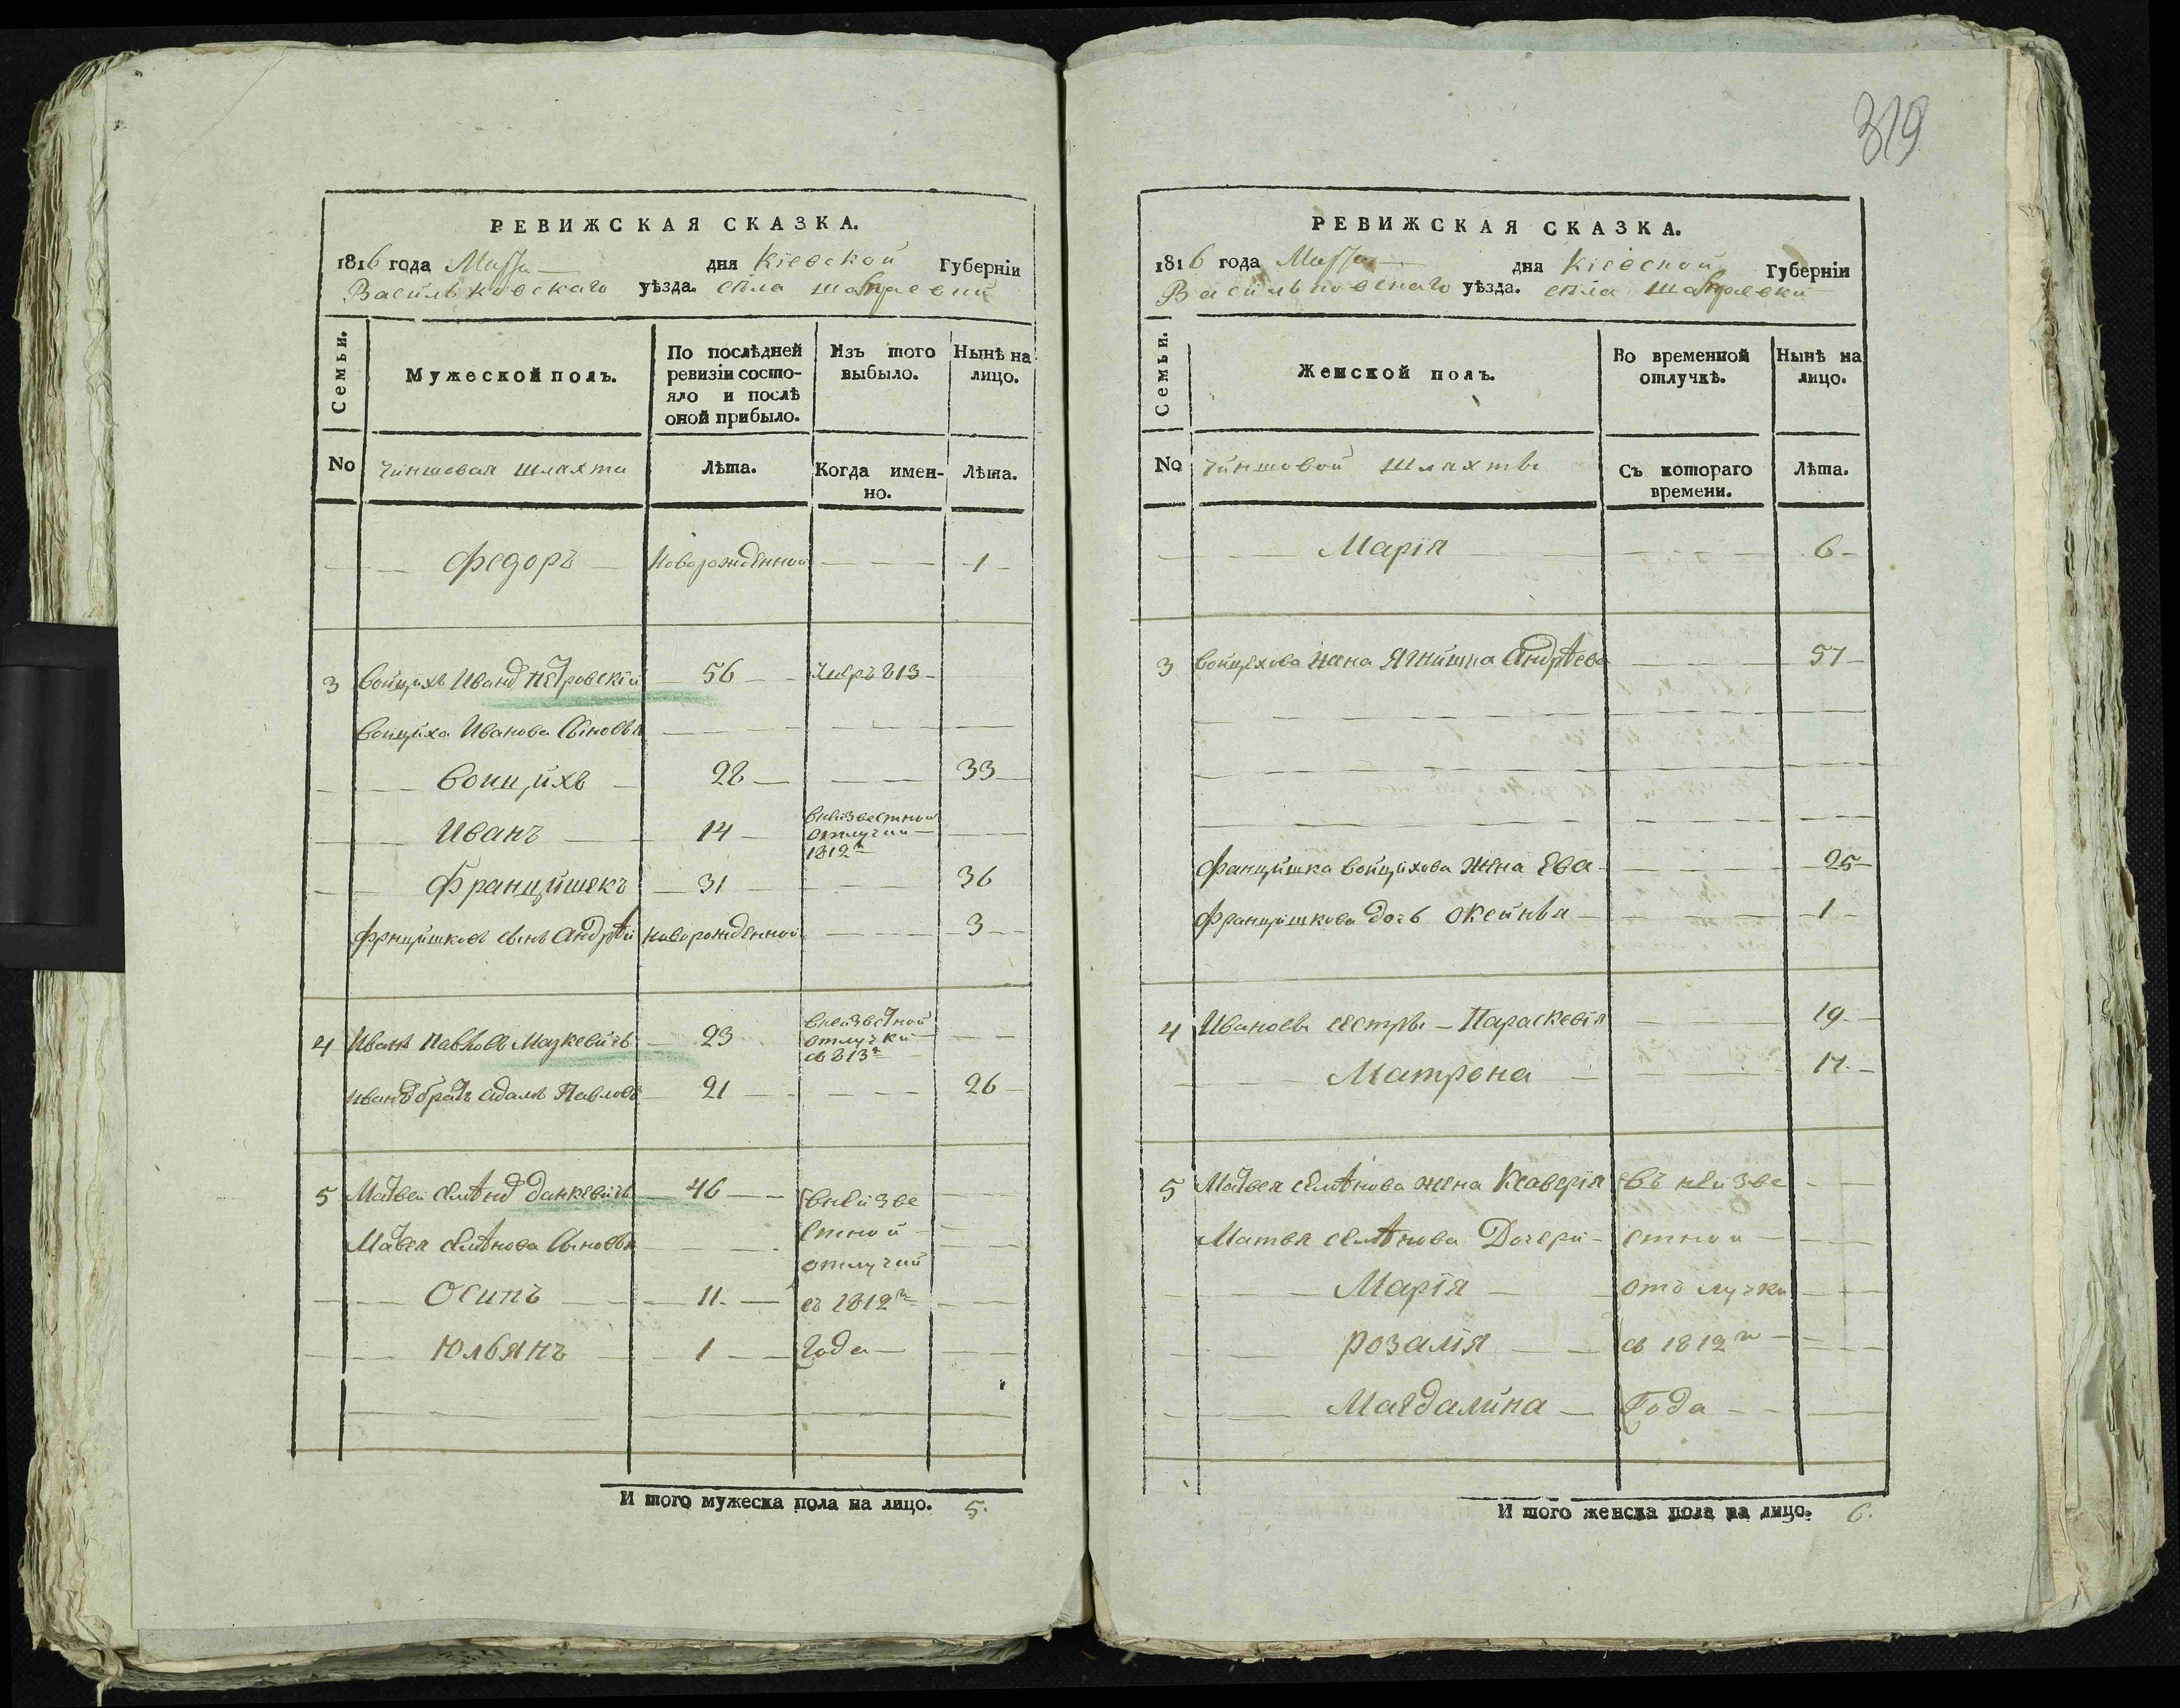 319
РЕВИЖСКАЯ СКАЗКА.
1816 года Марта дня Кіевской Губерніи
Васильковскаго уѣзда. села
Семьи.
Мужеской полъ.
По послѣдней ревизіи состо-
яло и послѣ
оной прибыло.
Изъ того выбыло.
Нынѣ на лицо.
No
Чиншовая шляхта
Лѣта.
Когда имен-
но.
Лѣта.
Федоръ Новорожденной 1
3 Войцихъ Иванъ Петровскій 56 Умръ 813
Войциха Иванова Сыновья
Войцихъ 28 33
Иванъ 14 в неизвестной
отлучки
1812
Францишекъ 31 36
Фрнцишковъ сынъ Андрѣй новорожденной 3
4 Иванъ Павловъ Мацкевичъ 23 в неизвестной
отлучки
съ 813
Ивановъ братъ Адамъ Павловъ 21 26
5 Матвей Данкевичъ 46 в неизве
Матвея Сыновья стной
отлучки
Осипъ 11 съ 1812
Юльянъ 1 Года
И того мужеска пола на лицо. 5.
РЕВИЖСКАЯ СКАЗКА.
1816 года Марта дня Кіевской Губерніи
Васильковскаго уѣзда. села
Семьи.
Женской полъ.
Во временной
отлучкѣ.
Нынѣ на
лицо.
No
Чиншовой шляхты
Съ котораго
времени.
Лѣта.
Марія 6
3 Войцехова жена Ягнишка Андрѣева 57
Фанцишка Войцихова жена Ева 25
Францишкова дочь Оксинья 1
4 Ивановы сестры Параскевія 19
Матрона 17
5 Матвея жена Ксаверія въ неизве
Матвя Дочери стной
Марія отъ лучки
Розалія съ 1812
Магдалина Года
И того женска пола на лицо. 6.